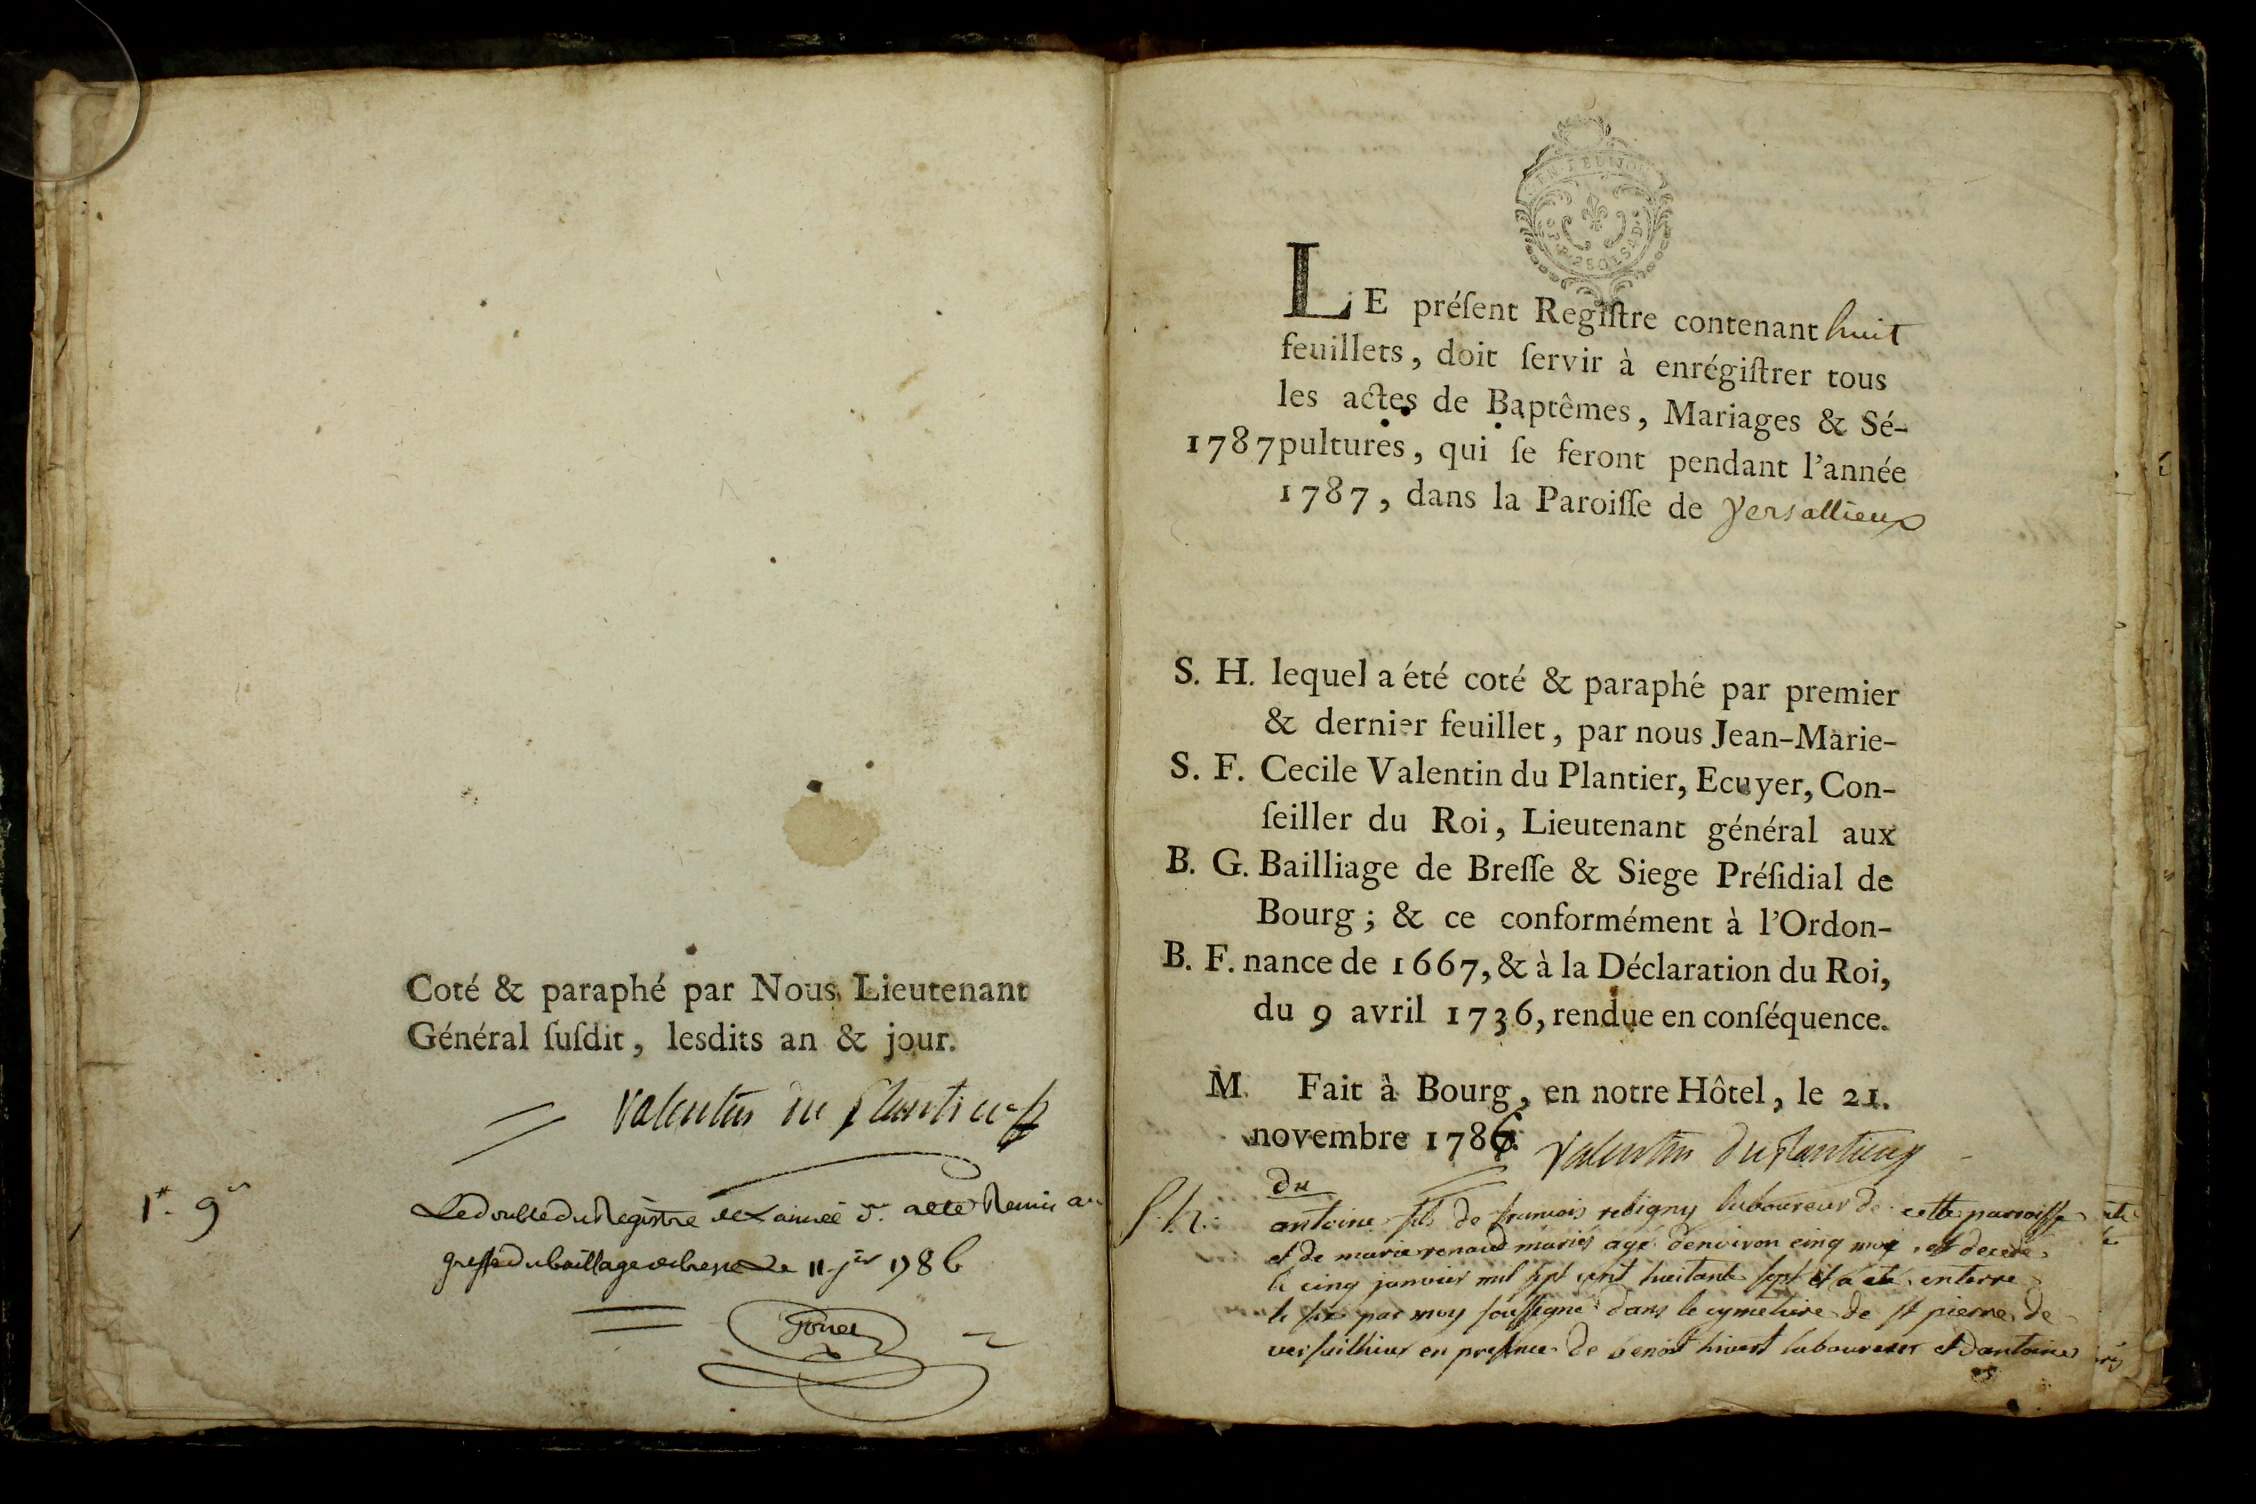 Coté & paraphé par Nous Lieutenant
Général ſuſdit, lesdits an & jour.
Valentin du Plantier
1r. 9
Le double du Registre de L'année d. a ete Remis au
greffe du bailliage de bresse Le 11 jer 1786
LE préſent Regiſtre contenant huit
feuillets, doit ſervir à enrégiſtrer tous
les actes de Baptêmes, Mariages & Sé-
1787 pultures, qui ſe feront pendant l'année
1787, dans la Paroiſſe de Versallieux
S. H. lequel a été coté & paraphé par premier
& dernier feuillet, par nous Jean-Marie-
S. F. Cecile Valentin du Plantier, Ecuyer, Con-
ſeiller du Roi, Lieutenant général aux
B. G. Bailliage de Breſſe & Siege Préſidial de
Bourg; & ce conformément à l'Ordon-
B. F. nance de 1667, & à la Déclaration du Roi,
du 9 avril 1736, rendue en conſéquence.
M. Fait à Bourg, en notre Hôtel, le 21.
novembre 1786 Valentin du Plantier
du
S. h. antoine fils de francois religny laboureur de cette parroisse
et de marie renaud mariés agé d'environ cinq moy est decede
le cinq janvier mil sept cent huitante sept il a ete enterre
le six par moy soussigné dans le cymetiere de st pierre de
versailhieux en presence de benoit hivert laboureur et d'antoine